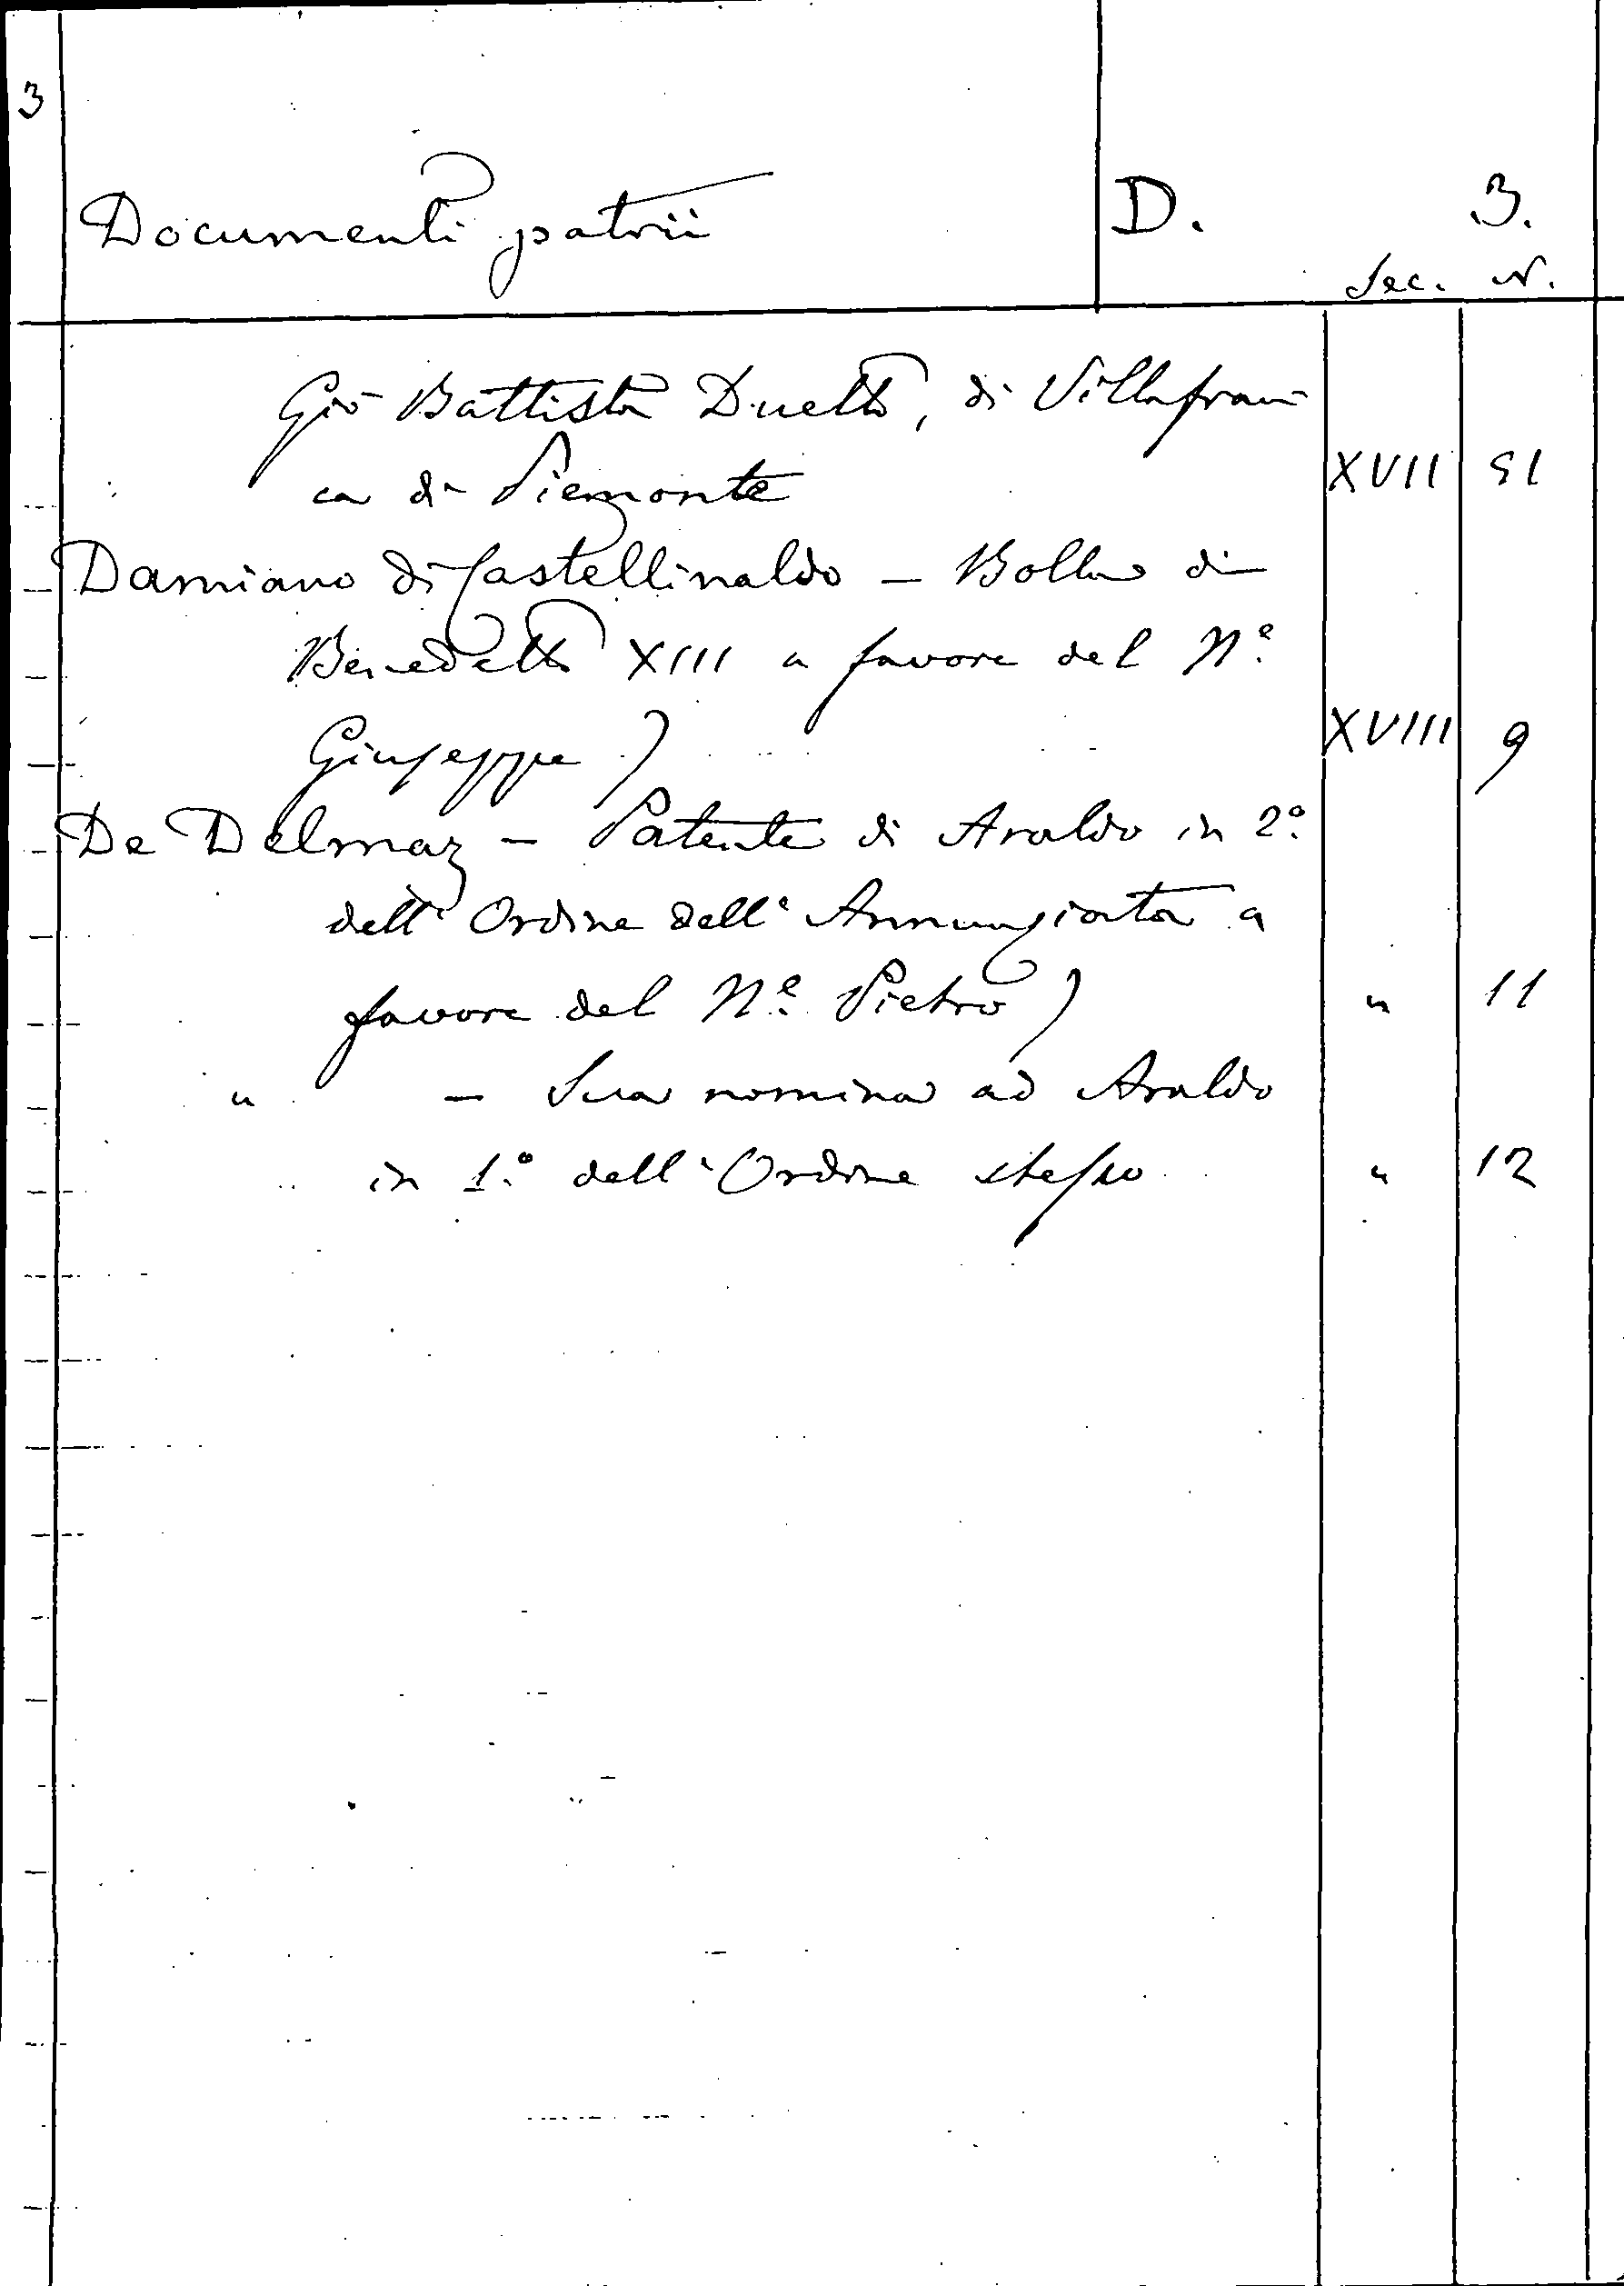 3
Documenti patrii D. 3.
Sec. N.
Gio Battista Duetto, di Villafran
ca di Piemonte XVII 51
Damiano di Castellinaldo — Bolla di
Benedetto XIII a favore del N.e
Giuseppe) XVIII 9
De Delmaz — Patente di Araldo in 2°.
dell'Ordine dell'Annunziata a
favore del N.e Pietro) " 11
" — Sua nomina ad Araldo
in 1.° dell'Ordine stesso " 12